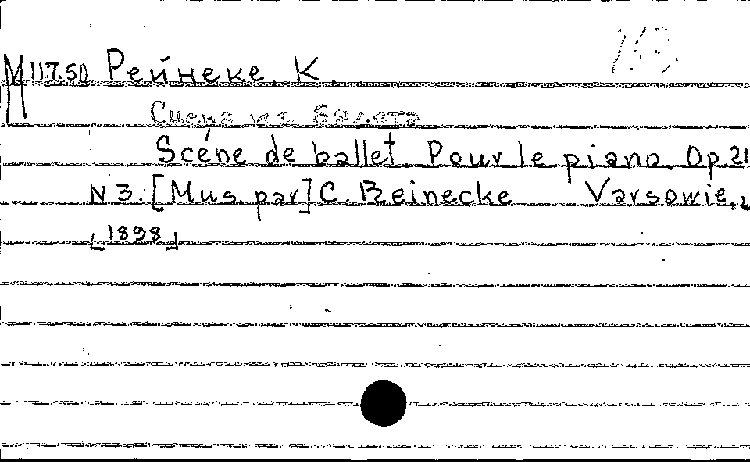 M 117.50 Рейнеке. К.
Сцена из балета
Scéne de ballet. Pour le piano. Op. 21
N 3. [Mus. par] C. Reinecke Varsowie,
[1898]